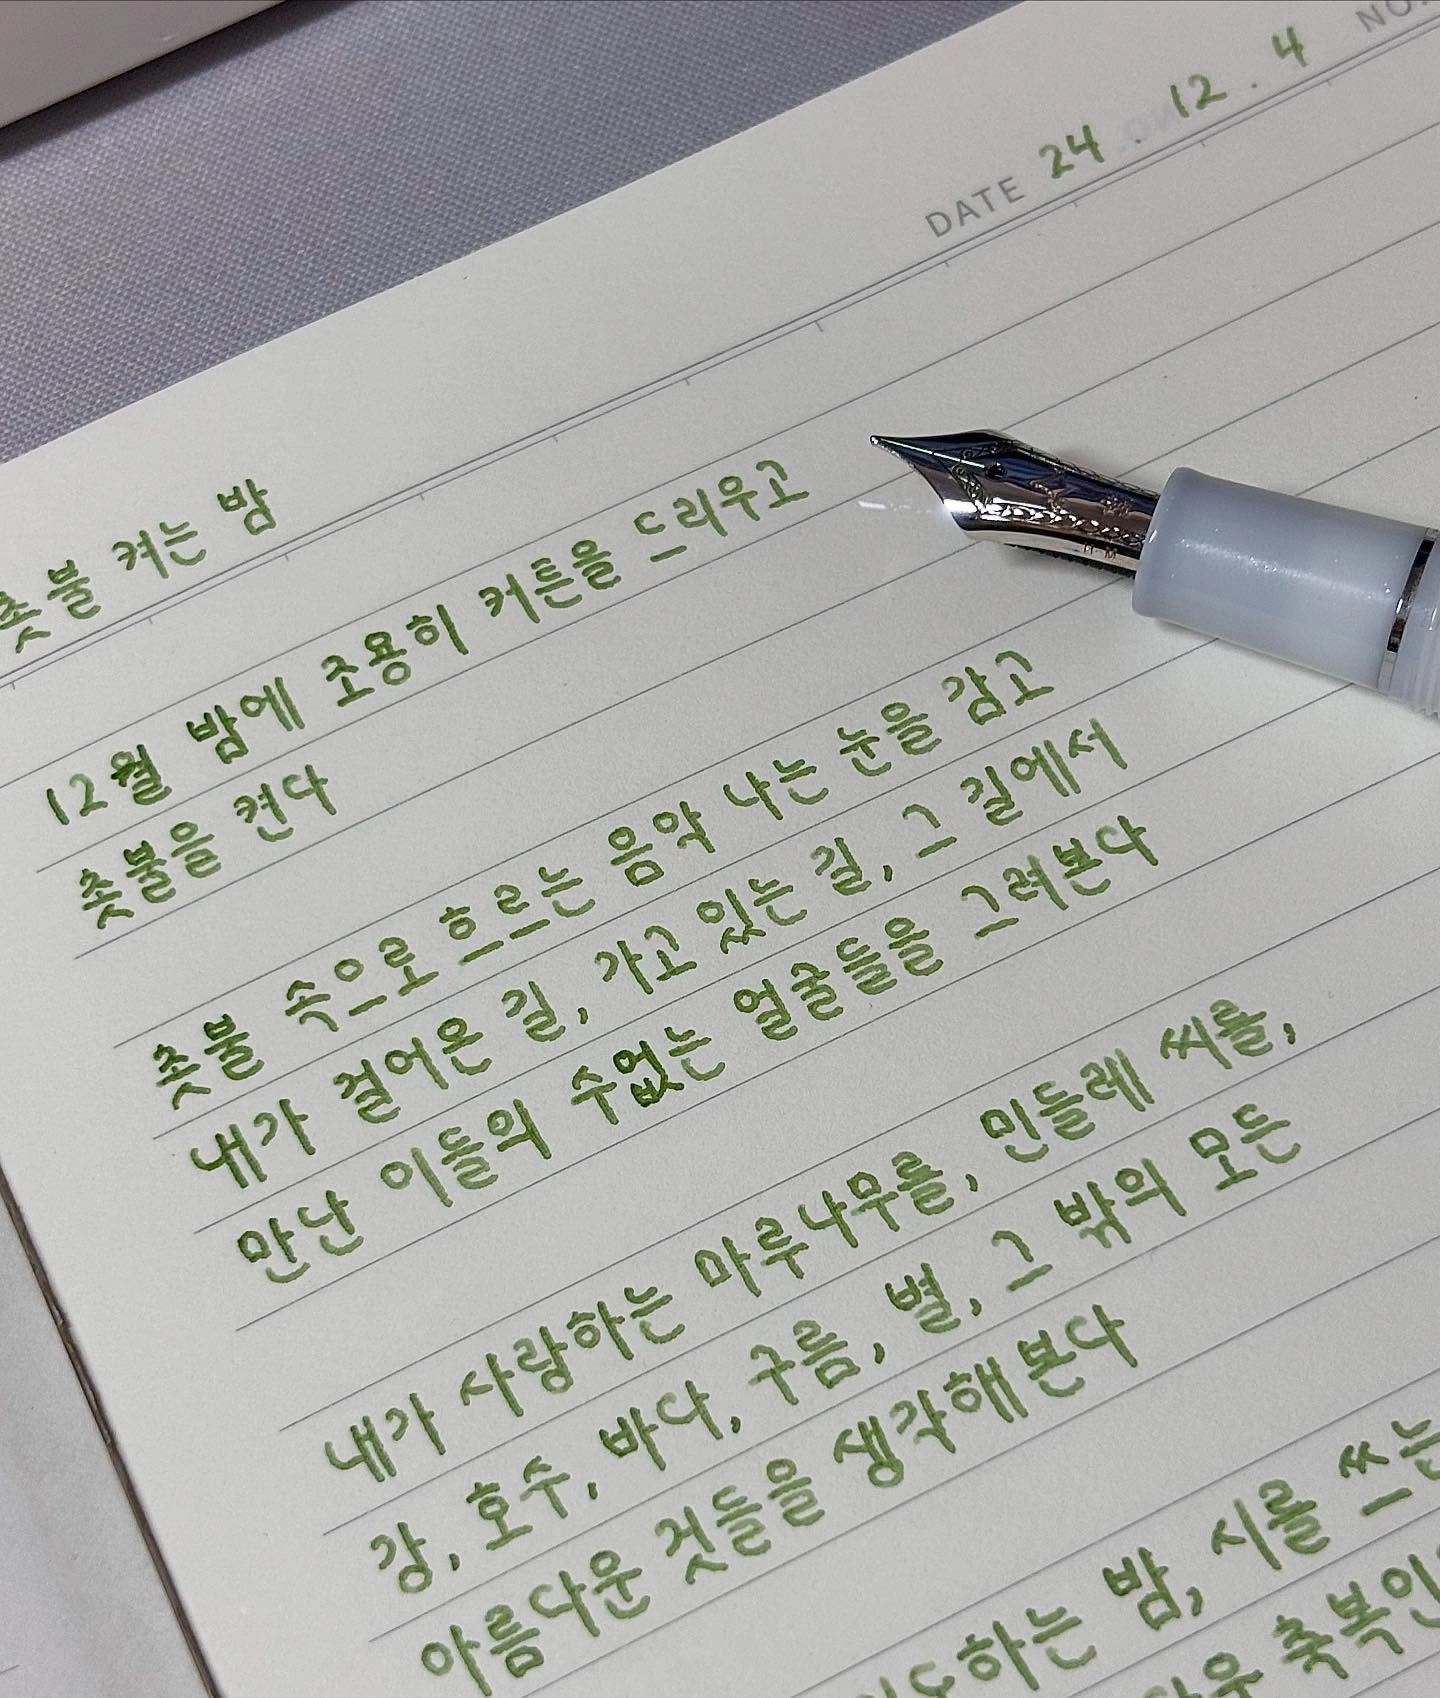 NO.
DATE 24 . 12 . 4
촛불 켜는 밤
12월 밤에 조용히 커튼을 드리우고
촛불을 켠다
촛불 속으로 흐르는 음악 나는 눈을 감고
내가 걸어온 길, 가고 있는 길, 그 길에서
만난 이들의 수없는 얼굴들을 그려본다
내가 사랑하는 마루나무를, 민들레 씨를,
강, 호수, 바다, 구름, 별, 그 밖의 모든
아름다운 것들을 생각해본다
하는 밤, 시를 쓰는
축복인